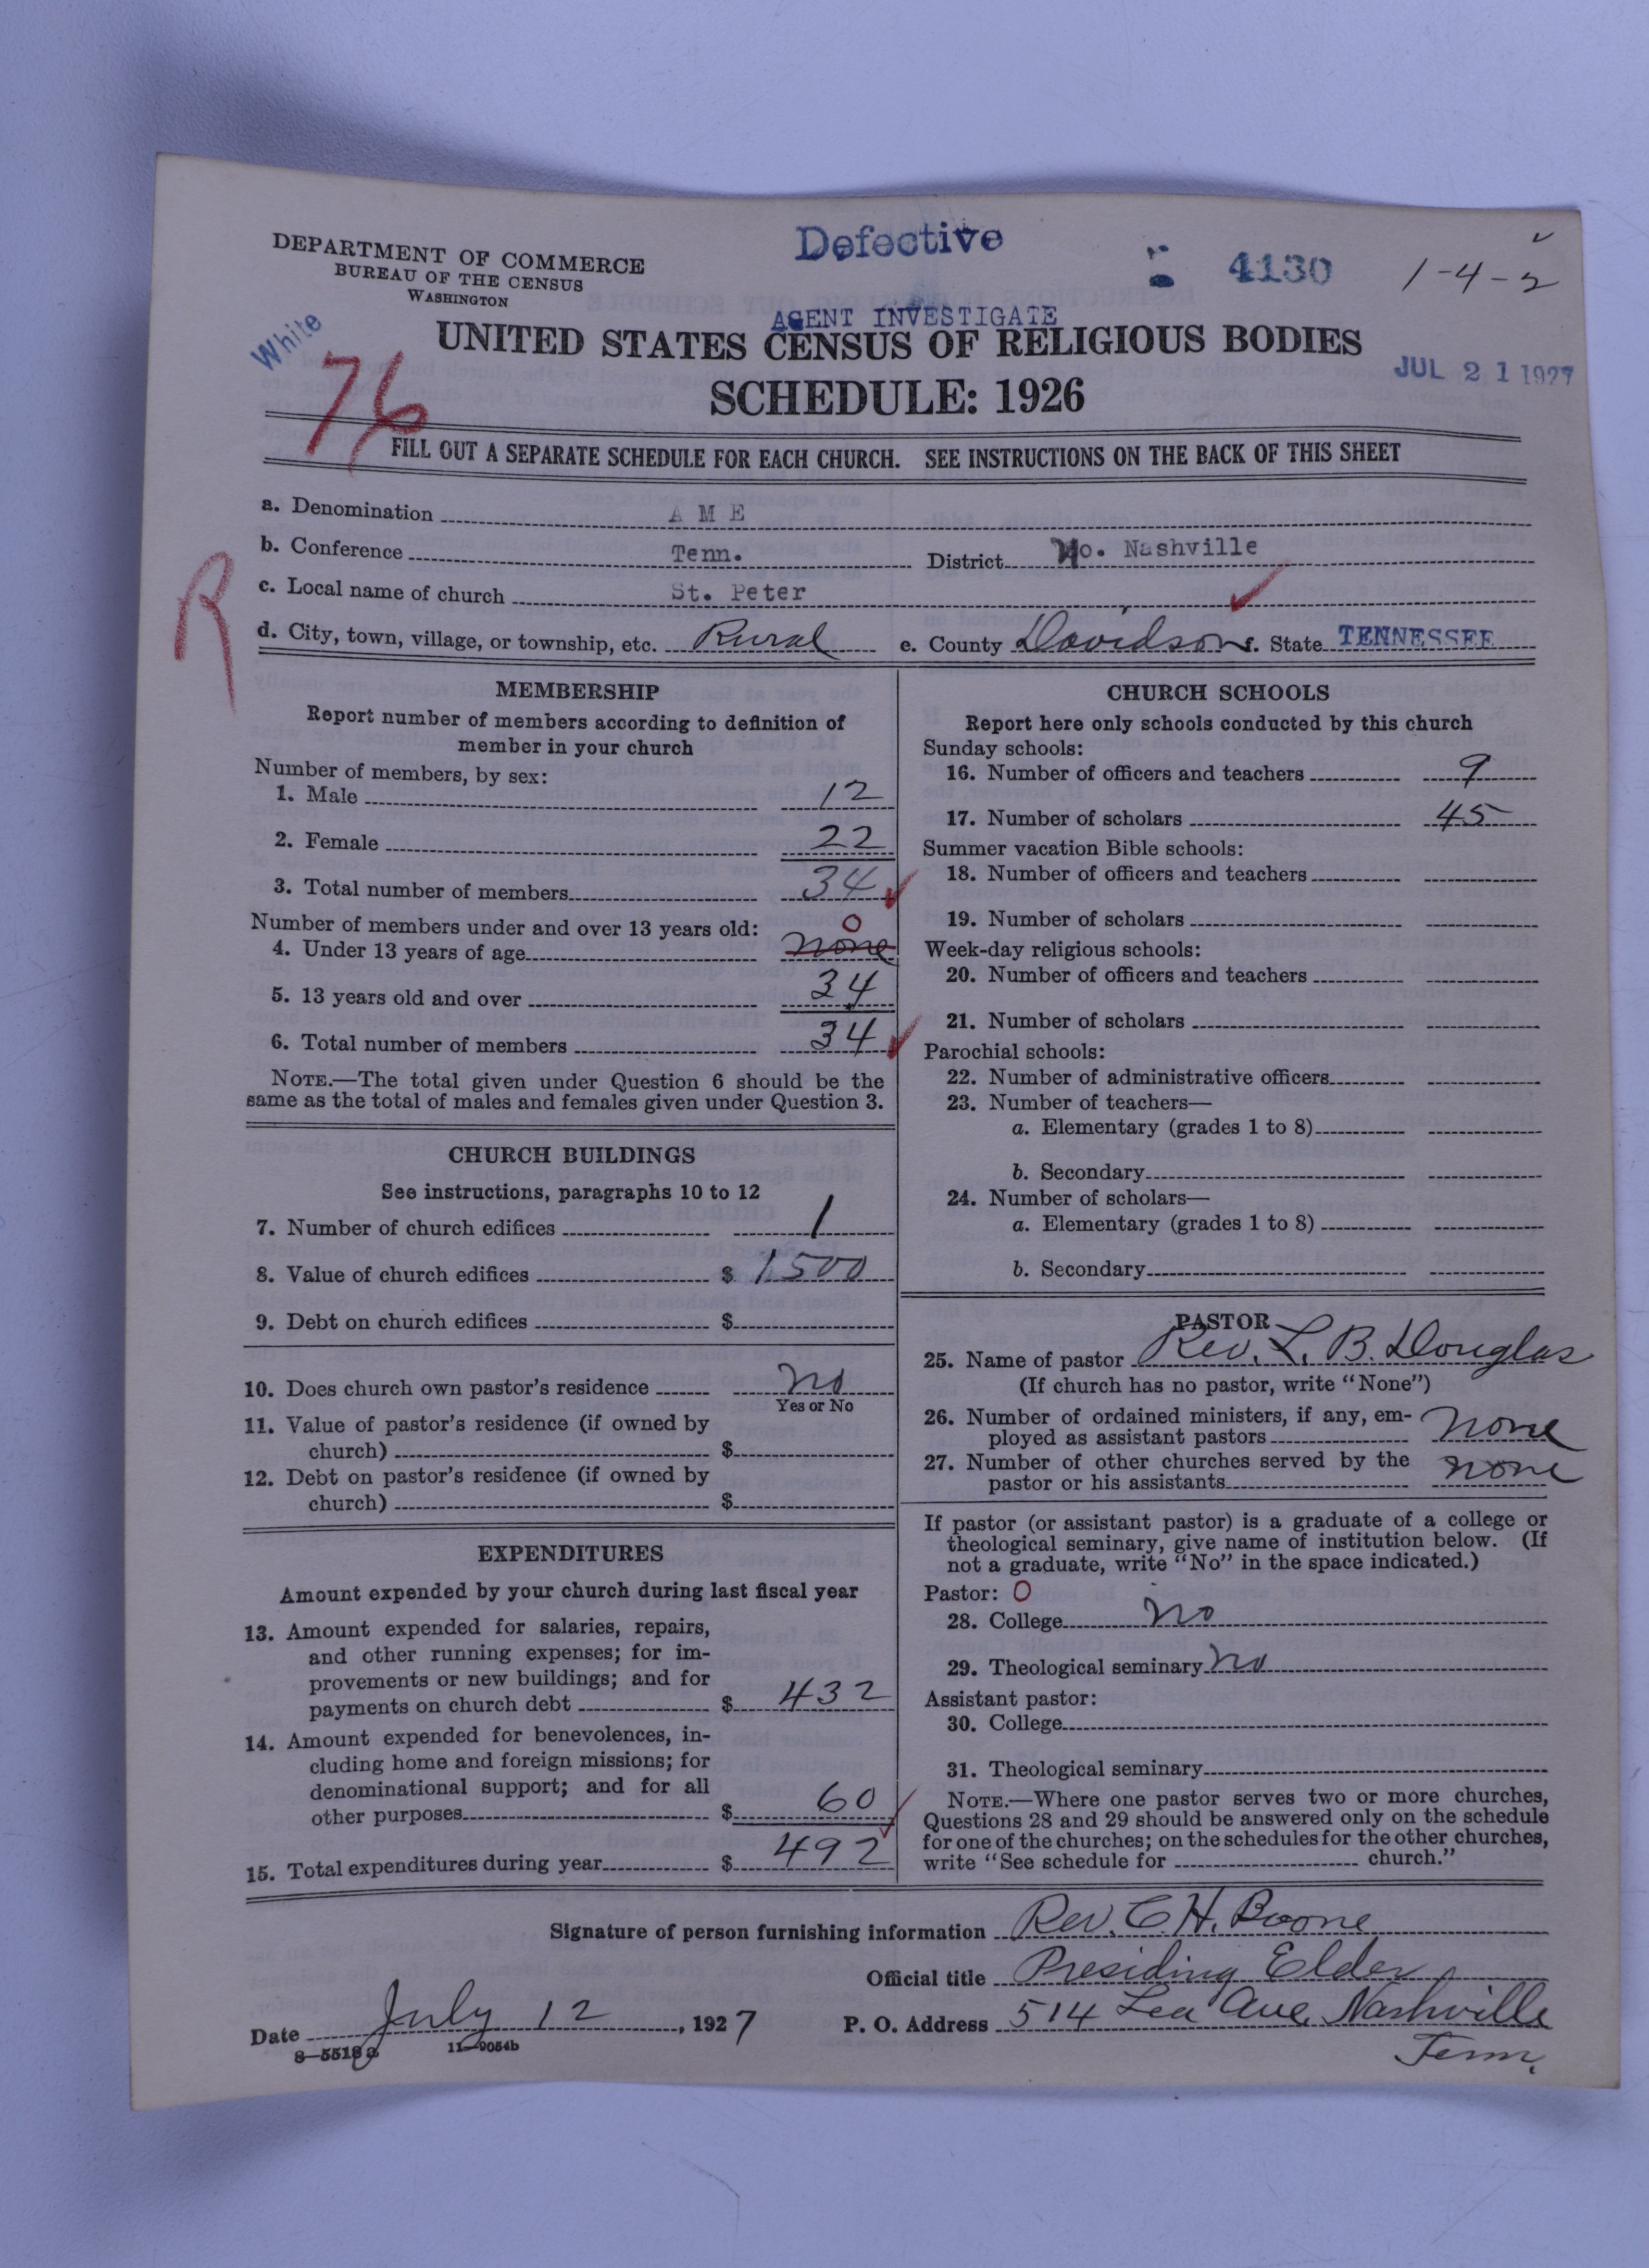 DEPARTMENT OF COMMERCE
BUREAU OF THE CENSUS
WASHINGTON
Defective
4130
1-4-2
White
AGENT INVESTIGATE
UNITED STATES CENSUS OF RELIGIOUS BODIES
JUL 21 1927
76
SCHEDULE: 1926
FILL OUT A SEPARATE SCHEDULE FOR EACH CHURCH. SEE INSTRUCTIONS ON THE BACK OF THIS SHEET
a. Denomination A M E
b. Conference Tenn. District No. Nashville
R
c. Local name of church St. Peter
d. City, town, village, or township, etc. Rural e. County Davidson f. State TENNESSEE
MEMBERSHIP
Report number of members according to definition of
member in your church
Number of members, by sex:
1. Male 12
2. Female 22
3. Total number of members 34
Number of members under and over 13 years old: 0
4. Under 13 years of age none
5. 13 years old and over 34
6. Total number of members 34
NOTE.—The total given under Question 6 should be the
same as the total of males and females given under Question 3.
CHURCH BUILDINGS
See instructions, paragraphs 10 to 12
7. Number of church edifices 1
8. Value of church edifices $ 1500
9. Debt on church edifices $
10. Does church own pastor's residence no
Yes or No
11. Value of pastor's residence (if owned by
church) $
12. Debt on pastor's residence (if owned by
church) $
EXPENDITURES
Amount expended by your church during last fiscal year
13. Amount expended for salaries, repairs,
and other running expenses; for im-
provements or new buildings; and for
payments on church debt $ 432
14. Amount expended for benevolences, in-
cluding home and foreign missions; for
denominational support; and for all
other purposes $ 60
15. Total expenditures during year $ 492
CHURCH SCHOOLS
Report here only schools conducted by this church
Sunday schools:
16. Number of officers and teachers 9
17. Number of scholars 45
Summer vacation Bible schools:
18. Number of officers and teachers
19. Number of scholars
Week-day religious schools:
20. Number of officers and teachers
21. Number of scholars
Parochial schools:
22. Number of administrative officers
23. Number of teachers—
a. Elementary (grades 1 to 8)
b. Secondary
24. Number of scholars—
a. Elementary (grades 1 to 8)
b. Secondary
PASTOR
25. Name of pastor Rev. L. B. Douglas
(If church has no pastor, write "None")
26. Number of ordained ministers, if any, em-
ployed as assistant pastors none
27. Number of other churches served by the
pastor or his assistants none
If pastor (or assistant pastor) is a graduate of a college or
theological seminary, give name of institution below. (If
not a graduate, write "No" in the space indicated.)
Pastor: 0
28. College no
29. Theological seminary no
Assistant pastor:
30. College
31. Theological seminary
NOTE.—Where one pastor serves two or more churches,
Questions 28 and 29 should be answered only on the schedule
for one of the churches; on the schedules for the other churches,
write "See schedule for church."
Signature of person furnishing information Rev. C H. Boone
Official title Presiding Elder
Date July 12, 1927 P. O. Address 514 Lea Ave, Nashville
Tenn.
8-5518a 11-9054b